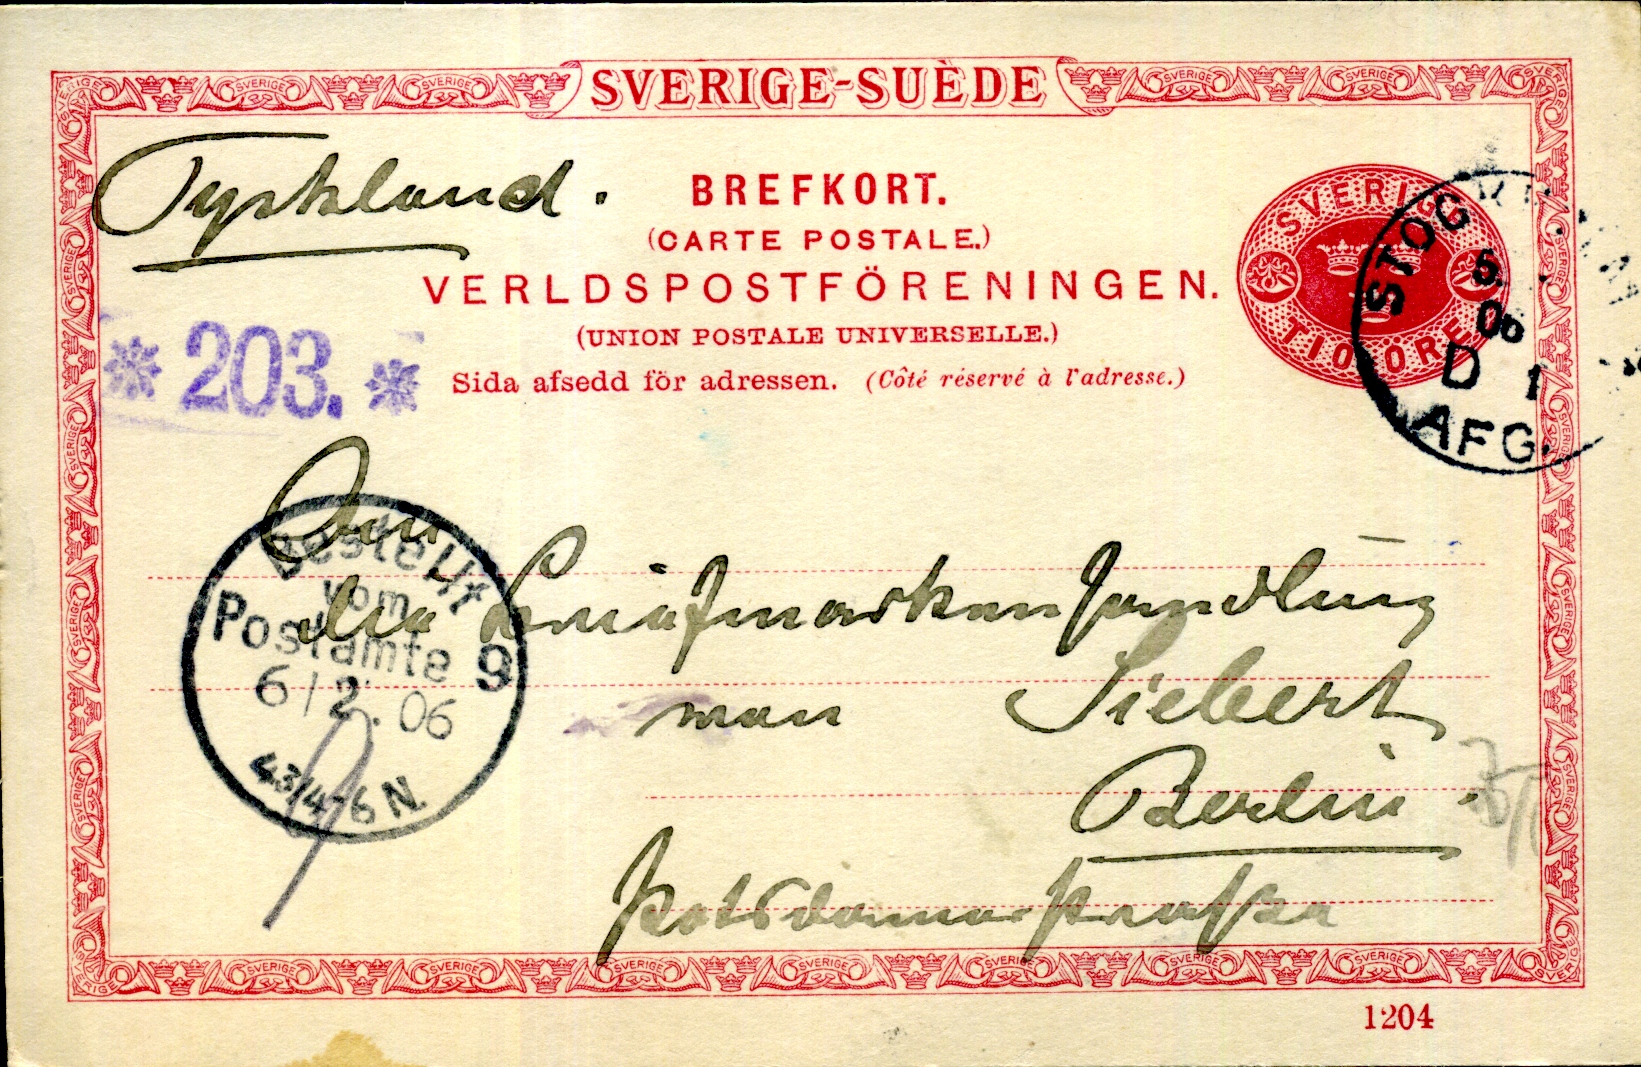 SVERIGE-SUÈDE
Tyskland.
BREFKORT.
(CARTE POSTALE.)
VERLDSPOSTFÖRENINGEN.
(UNION POSTALE UNIVERSELLE.)
Sida afsedd för adressen. (Côté réservé à l'adresse.)
SVERIGE
TIO ÖRE
STOCKHOLM
5.
06
D 1
AFG.
* 203. *
An
die Briefmarkenhandlung
von Siebert
Berlin.
Potsdamerstrasse
Bestellt
vom
Postamte 9
6/2.06
43/4-6 N.
1204